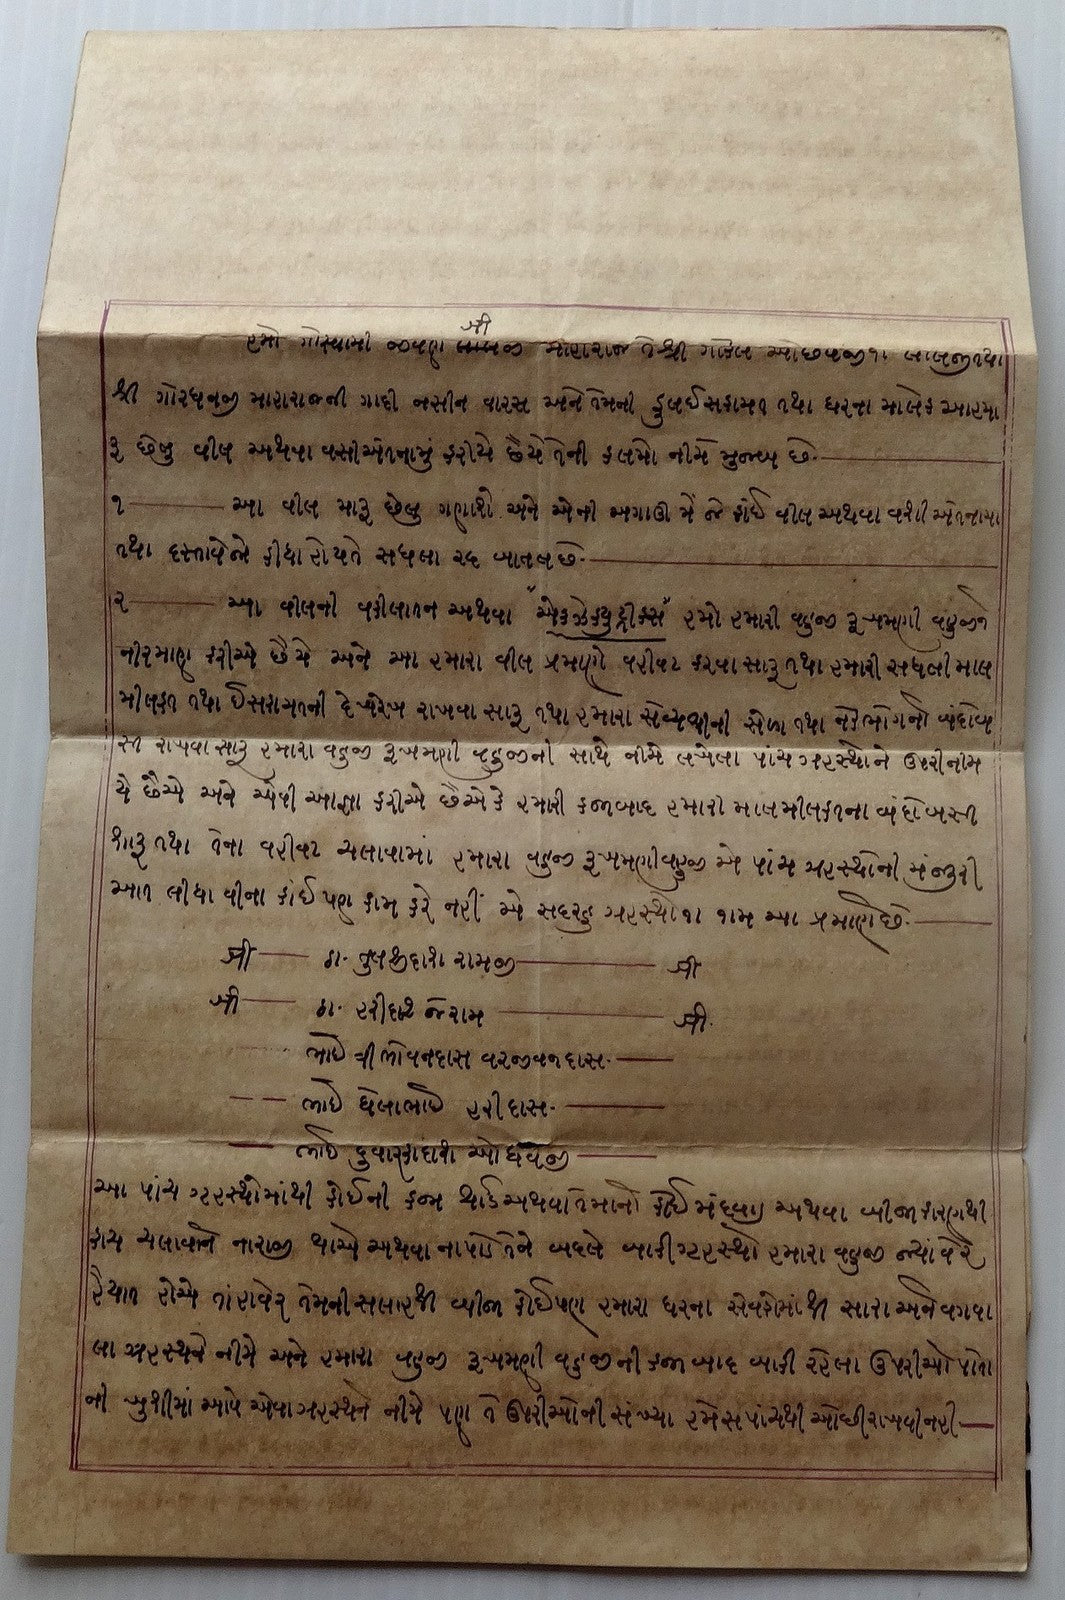 શ્રી
હમો ગોસ્વામી જીવણ લાલજી માહારાજ તેશ્રી ગોકુલ ઓછવજીના લાલજી તથા
શ્રી ગોરધનજી માહારાજની ગાદી નસીન વારસ અને તેમની કુલ ઈસકામત તથા ઘરના માલેક આ હમા
રૂ છેલુ વીલ અથવા વસીએતનામું કરીયે છૈયે તેની કલમો નીચે મુજબ છે.
૧ આ વીલ મારૂ છેલુ ગણાશે અને એની અગાઉ મેં જે કાંઈ વીલ અથવા વશીએતનામા
તથા દસ્તાવેજો કીધા હોય તે સઘલા રદ બાતલ છે.
૨ આ વીલની વકીલાતન અથવા "એકઝેક્યુટ્રીકસ" હમો હમારી વહુજી રૂખમણી વહુજીને
નીરમાણ કરીએ છૈયે અને આ હમારા વીલ પ્રમાણે વહીવટ કરવા સારૂ તથા હમારી સઘલી માલ
મીલકત તથા ઈસકામતની દેખરેખ રાખવા સારૂ તથા હમારા સેવ્ય શ્રીની સેવા તથા નેકભોગનો બંદોબ
સ્ત રાખવા સારૂ હમારા વહુજી રૂખમણી વહુજીની સાથે નીચે લખેલા પાંચ ગ્રહસ્થોને ઉપરી નીમ
યે છૈએ અને એવી આજ્ઞા કરીએ છૈએ કે હમારી કજા બાદ હમારી માલમીલકતના બંદોબસ્ત
શારૂ તથા તેના વહીવટ ચલાવામાં હમારા વહુજી રૂખમણી વહુજી એ પાંચ ગ્રહસ્થોની મંજુરી
આત લીધા વીના કાંઈ પણ કામ કરે નહીં એ સદરહુ ગ્રહસ્થોના નામ આ પ્રમાણે છે.
શ્રી ઠા. તુલશીદાશ રામજી શ્રી
શ્રી ઠા. હરીદાશ જેરામ શ્રી.
ભાઈ ત્રીભોવનદાસ વરજીવનદાસ.
ભાઈ ઘેલાભાઈ હરીદાસ.
ભાઈ દુવારકાદાશ ઓધવજી
આ પાંચ ગ્રહસ્થોમાંથી કોઈની કજા થાઈ અથવા તેમાનો કોઈ મંદવાડ અથવા બીજા કારણથી
કામ ચલાવાને નારાજી થાએ અથવા ના પાડે તેને બદલે બાકી ગ્રહસ્થો હમારા વહુજી જ્યાં વેર
હૈયાત હોએ તાંહાવેર તેમની સલાહથી બીજા કોઈ પણ હમારા ઘરના સેવકોમાંથી સારા અને વગવા
લા ગ્રહસ્થને નીમે અને હમારા વહુજી રૂખમણી વહુજીની કજા બાદ બાકી રહેલા ઉપરીઓ પોતા
ની ખુશીમાં આવે એવા ગ્રહસ્થને નીમે પણ તે ઉપરીઓની સંખ્યા હમેસ પાંચથી ઓછી રાખવી નહી